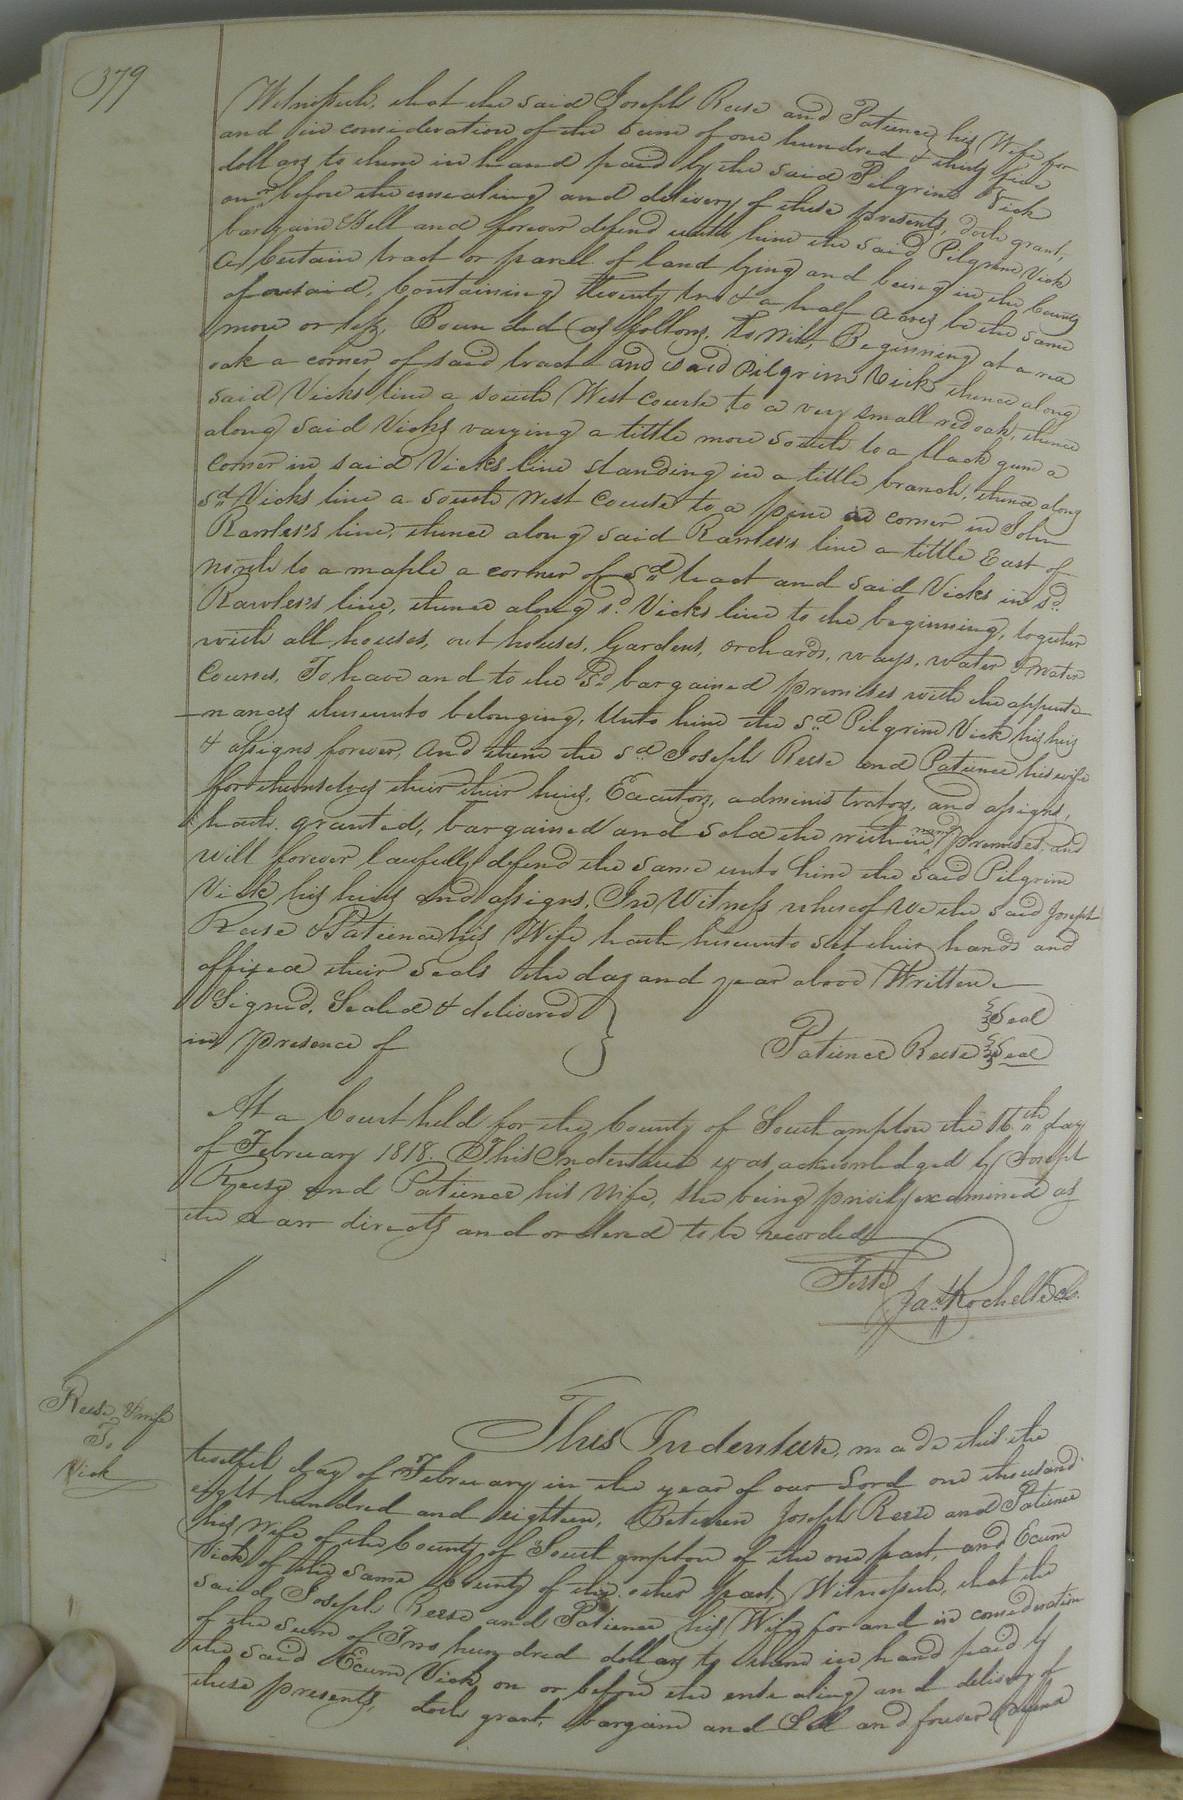 379
Witnesseth, that the said Joseph Reese and Patience his Wife for
and in consideration of the sum of one hundred & thirty five
dollars to them in hand paid by the said Pilgrim Vick
on or before the ensealing and delivery of these presents, doth grant,
bargain & sell and forever defend unto him the said Pilgrim Vick
a certain tract or parcel of land lying and being in the County
aforesaid, Containing Twenty two & a half Acres be the same
more or less, Bounded as follows, To Wit, Beginning at a red
oak a corner of said tract and said Pilgrim Vick thence along
said Vicks line a south West Course to a very small red oak, thence
along said Vicks varying a little more South to a black gum a
corner in said Vicks line standing in a little branch, thence along
sd. Vicks line a south west Course to a pine a corner in John
Rawles's line, thence along said Rawles's line a little East of
north to a maple a corner of sd. tract and said Vicks in sd.
Rawles's line, thence along sd. Vicks line to the beginning, together
with all houses, out houses, Gardens, orchards, ways, water & water
Courses, To have and to the sd. bargained premises with the appurte
nances thereunto belonging, Unto him the sd. Pilgrim Vick his heirs
& assigns forever, And them the sd. Joseph Reese and Patience his wife
for themselves their their heirs, Executors, administrators, and assigns,
hath granted, bargained and sold the within named premises and
will forever lawfully defend the same unto him the said Pilgrim
Vick his heirs and assigns, In Witness whereof We the said Joseph
Reese & Patience his Wife hath hereunto set their hands and
affixed their Seals the day and year above Written
Signed, Sealed & delivered } Seal
in presence of Patience Reese Seal
At a Court held for the County of Southampton the 16th day
of February 1818. This Indenture was acknowledged by Joseph
Reese and Patience his wife, she being privily examined as
the Law directs and ordered to be recorded
Teste
Jas. Rochelle Cl.
Reese & wife
To
Vick
This Indenture, made this the
twelfth day of February in the year of our Lord one thousand
eight hundred and eighteen, Between Joseph Reese and Patience
his Wife of the County of Southampton of the one part, and Ecum
Vick of the same County of the other part, Witnesseth, that the
said Joseph Reese and Patience his Wife for and in consideration
of the sum of Two hundred dollars to them in hand paid by
the said Ecum Vick on or before the ensealing and delivery of
these presents, doth grant, bargain and Sell and forever defend